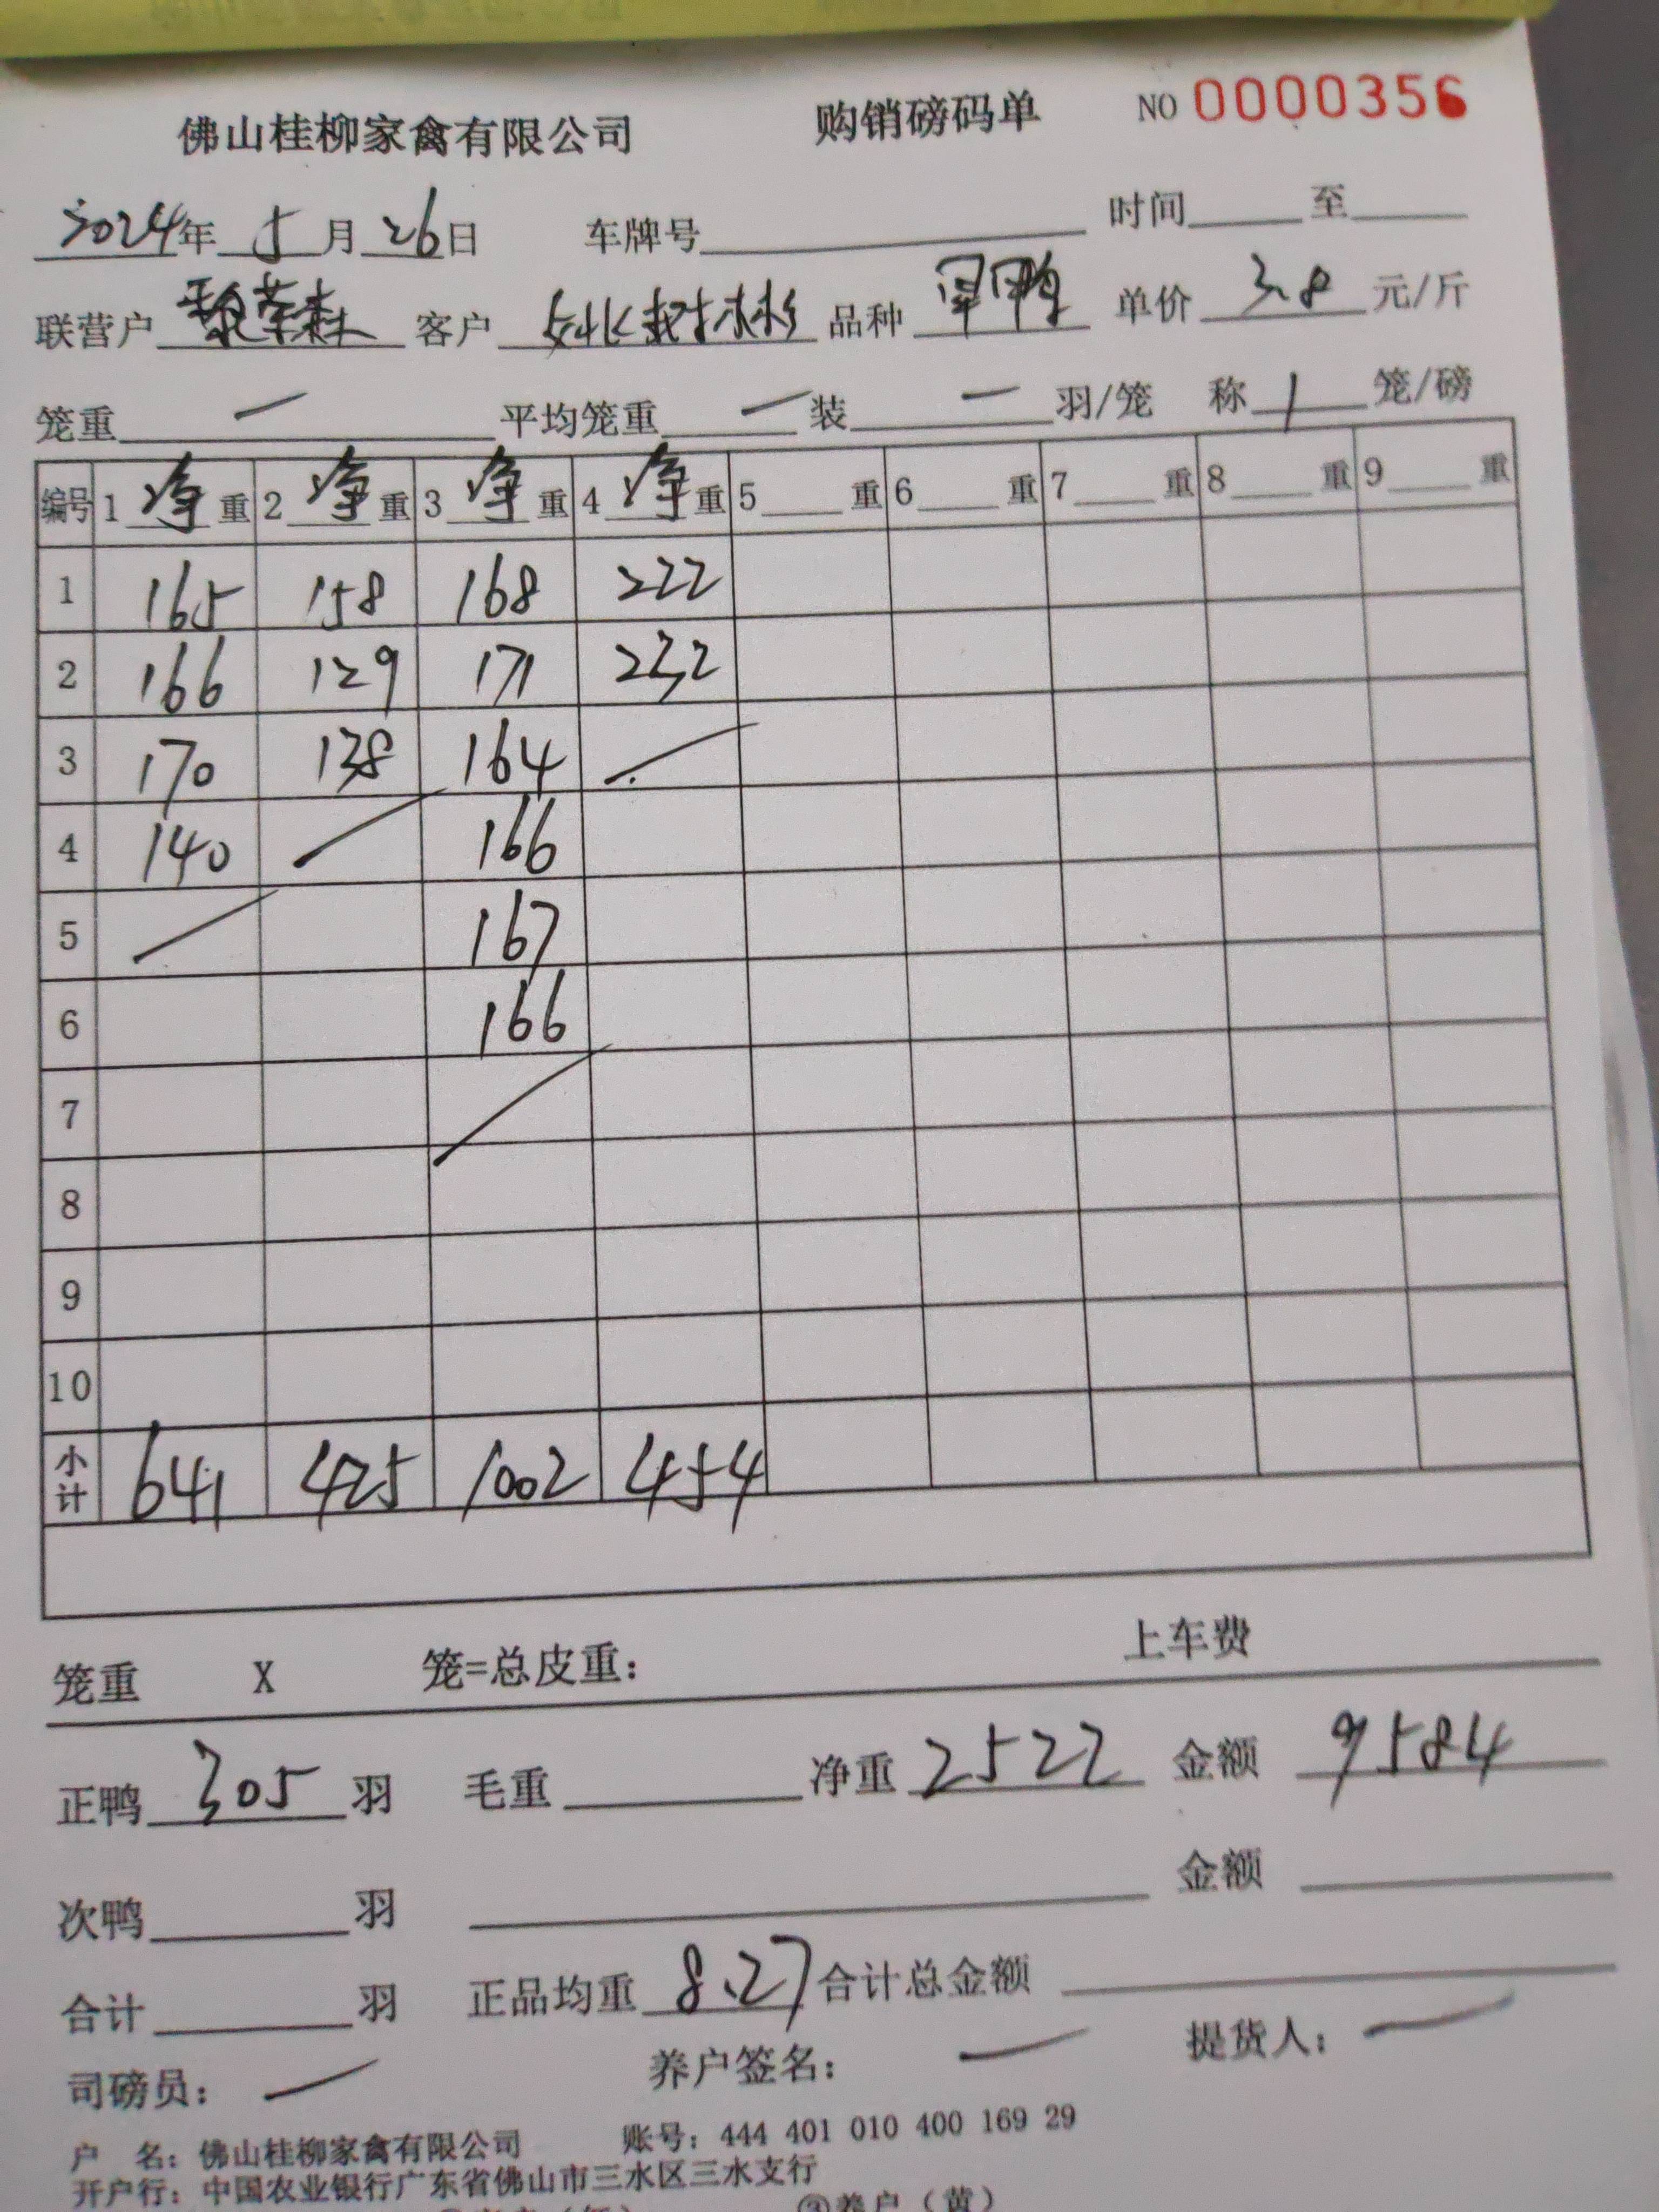 佛山桂柳家禽有限公司 购销磅码单 NO 0000356
2024年 5月 26日 车牌号 时间 至
联营户 黎荣森 客户 树彬 品种 鸭 单价 3.8 元/斤
笼重 一 平均笼重 一 装 一 羽/笼 称 1 笼/磅
编号 1 净 重 2 净 重 3 净 重 4 净 重 5 重 6 重 7 重 8 重 9 重
1 165 158 168 222
2 166 129 171 232
3 170 138 164
4 140 166
5 167
6 166
7
8
9
10
小计 641 425 1002 454
笼重 X 笼=总皮重： 上车费
正鸭 305 羽 毛重 净重 2522 金额 9584
次鸭 羽 金额
合计 羽 正品均重 8.27 合计总金额
司磅员： 养户签名： 提货人：
户 名：佛山桂柳家禽有限公司 账号：444 401 010 400 169 29
开户行：中国农业银行广东省佛山市三水区三水支行
③养户（黄）